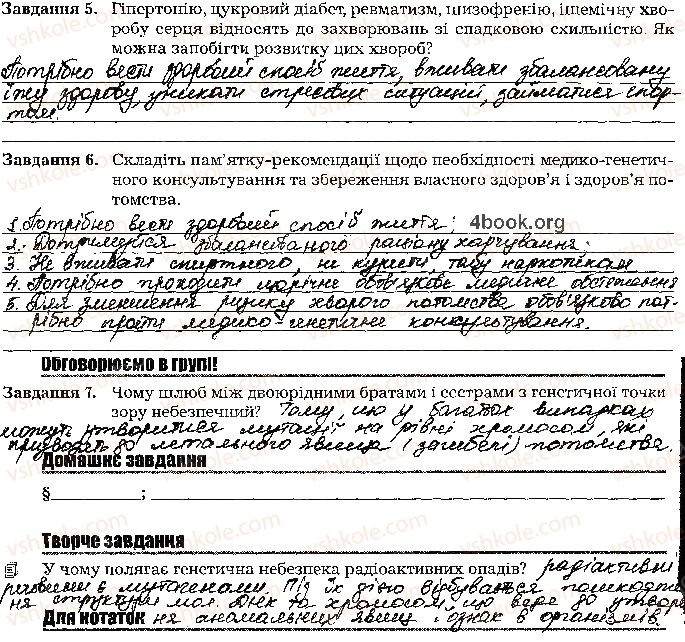 Завдання 5. Гіпертонію, цукровий діабет, ревматизм, шизофренію, ішемічну хво-
робу серця відносять до захворювань зі спадковою схильністю. Як
можна запобігти розвитку цих хвороб?
Потрібно вести здоровий спосіб життя, вживати збалансовану
їжу здорову, уникати стресових ситуацій, займатися спор-
том.
Завдання 6. Складіть пам'ятку-рекомендації щодо необхідності медико-генетич-
ного консультування та збереження власного здоров'я і здоров'я по-
томства.
1. Потрібно вести здоровий спосіб життя;
4book.org
2. Дотримуватися збалансованого раціону харчування;
3. Не вживати спиртного, не курити, табу наркотикам
4. Потрібно проходити щорічне обов'язкове медичне обстеження
5. Для зменшення ризику хворого потомства обов'язково пот-
рібно пройти медико-генетичне консультування.
Обговорюємо в групі!
Завдання 7. Чому шлюб між двоюрідними братами і сестрами з генетичної точки
зору небезпечний? Тому, що у багатьох випадках
можуть утворитися мутації на рівні хромосом, які
призводять до летального явища (загибелі) потомства.
Домашнє завдання
§ ;
Творче завдання
У чому полягає генетична небезпека радіоактивних опадів? радіактивні
речовини є мутагенами. Під їх дією відбувається пошкодже-
ня структури мол. ДНК та хромосом, що веде до утворе
Для нотаток ня аномальних явищ і ознак в організмів.